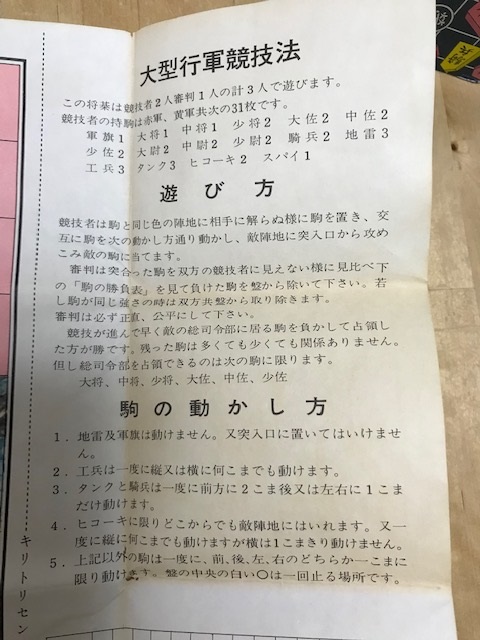 大型行軍競技法
この将棊は競技者2人審判1人の計3人で遊びます。
競技者の持駒は赤軍、黄軍共次の31枚です。
軍旗1 大将1 中将1 少将2 大佐2 中佐2
少佐2 大尉2 中尉2 少尉2 騎兵2 地雷3
工兵3 タンク3 ヒコーキ2 スパイ1
遊び方
競技者は駒と同じ色の陣地に相手に解らぬ様に駒を置き、交
互に駒を次の動かし方通り動かし、敵陣地に突入口から攻め
こみ敵の駒に当てます。
審判は突合った駒を双方の競技者に見えない様に見比べ下
の「駒の勝負表」を見て負けた駒を盤から除いて下さい。若
し駒が同じ強さの時は双方共盤から取り除きます。
審判は必ず正直、公平にして下さい。
競技が進んで早く敵の総司令部に居る駒を負かして占領し
た方が勝です。残った駒は多くても少くても関係ありません。
但し総司令部を占領できるのは次の駒に限ります。
大将、中将、少将、大佐、中佐、少佐
駒の動かし方
1.地雷及軍旗は動けません。又突入口に置いてはいけませ
ん。
2.工兵は一度に縦又は横に何こまでも動けます。
3.タンクと騎兵は一度に前方に2こま後又は左右に1こま
だけ動けます。
4.ヒコーキに限りどこからでも敵陣地にはいれます。又一
度に縦に何こまでも動けますが横は1こまきり動けません。
5.上記以外の駒は一度に、前、後、左、右のどちらか一こまに
限り動けます。盤の中央の白い〇は一回止る場所です。
キリトリセン